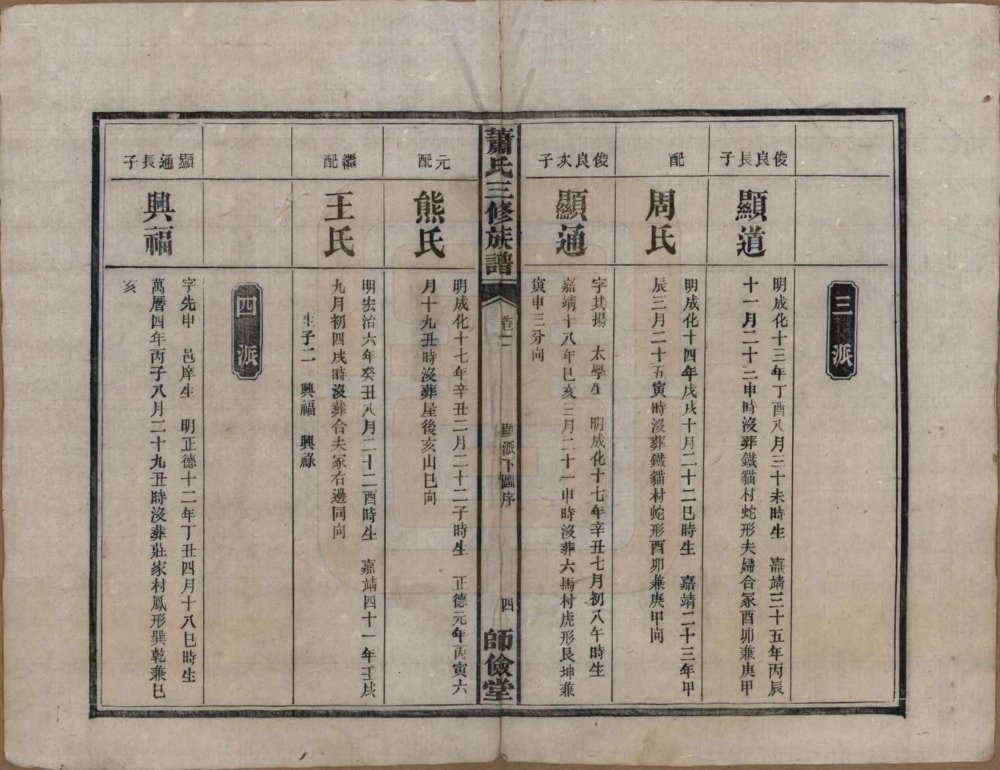 三派
俊良長子
顯道
明成化十三年丁酉八月三十未時生　嘉靖三十五年丙辰
十一月二十三申時沒葬鐵貓村蛇形夫婦合冢酉卯兼庚甲
配
周氏
明成化十四年戊戌十月二十二巳時生　嘉靖二十三年甲
辰三月二十五寅時沒葬鐵貓村蛇形酉卯兼庚甲向
俊良次子
顯通
字其揚　太學生　明成化十七年辛丑七月初八午時生
嘉靖十八年巳亥三月二十一申時沒葬六馬村虎形艮坤兼
寅申三分向
蕭氏三修族譜
卷一
派下齒序
四
師儉堂
元配
熊氏
明成化十七年辛丑二月二十二子時生　正德元年丙寅六
月十九丑時沒葬屋後亥山巳向
繼配
王氏
明宏治六年癸丑八月二十二酉時生　嘉靖四十一年壬戌
九月初四戌時沒葬合夫冢右邊同向
生子二　興福　興祿
四派
顯通長子
興福
字先申　邑庠生　明正德十二年丁丑四月十八巳時生
萬曆四年丙子八月二十九丑時沒葬莊家村鳳形巽乾兼巳
亥